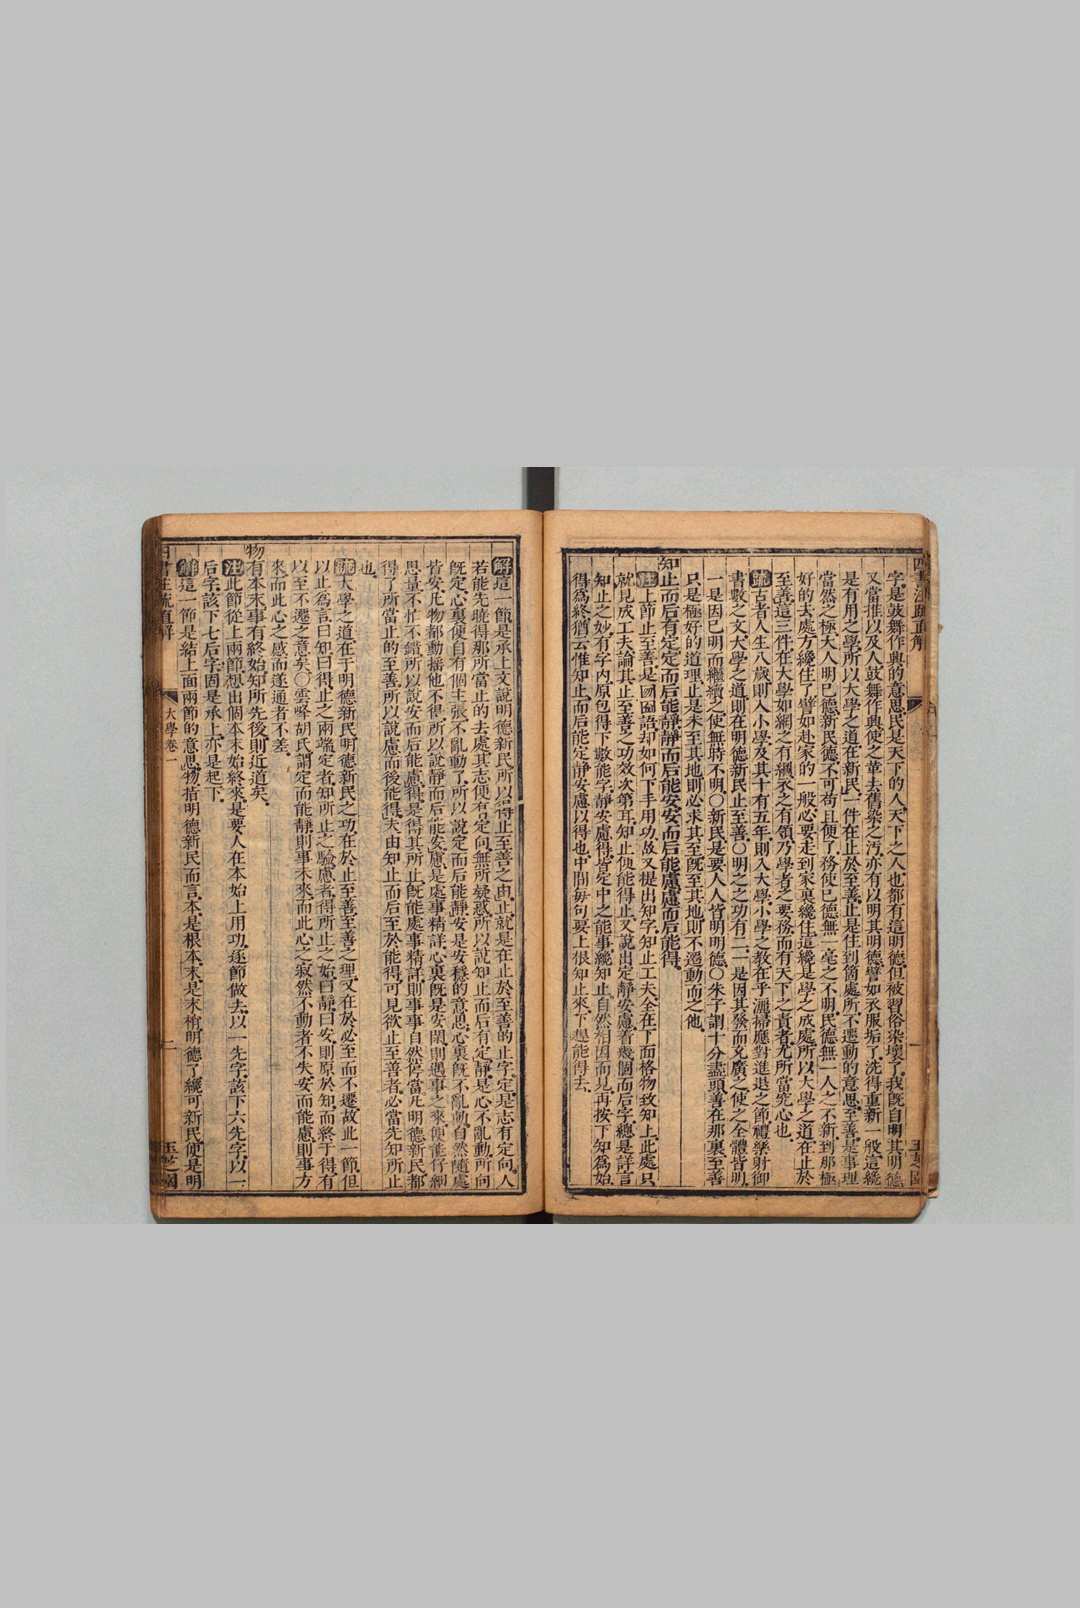 四書注疏直解
字是鼓舞作興的意思民是天下的人天下之人也都有這明德但被習俗染壞了我既自明其明德
又當推以及人鼓舞作興使之革去舊染之污亦有以明其明德譬如衣服垢了洗得重新一般這纔
是有用之學所以大學之道在新民一件在止於至善止是住到箇處所不遷動的意思至善是事理
當然之極大人明己德新民德不可苟且便了務使己德無一毫之不明民德無一人之不新到那極
好的去處方纔住了譬如赴家的一般必要走到家裏纔住這纔是學之成處所以大學之道在止於
至善這三件在大學如網之有綱衣之有領乃學者之要務而有天下之責者尤所當究心也
疏古者人生八歲則入小學及其十有五年則入大學小學之教在乎灑掃應對進退之節禮樂射御
書數之文大學之道則在明德新民止至善〇明之之功有二一是因其發而充廣之使之全體皆明
一是因已明而繼續之使無時不明〇新民是要人人皆明明德〇朱子謂十分盡頭善在那裏至善
只是極好的道理止是未至其地則必求其至既至其地則不遷動而之他
知止而后有定定而后能靜靜而后能安安而后能慮慮而后能得
注上節止至善是圇圇語却如何下手用功故又提出知字知止工夫全在下面格物致知上此處只
就見成工夫論其止至善之功效次第耳知止便能得止又說出定靜安慮者幾個而后字總是詳言
知止之妙有字內原包得下數能字靜安慮得皆定中之能事纔知止自然相因而見再按下知為始
得為終猶云惟知止而后能定靜安慮以得也中間每句要上根知止來下趕能得去
解這一節是承上文說明德新民所以得止至善之由止就是在止於至善的止字定是志有定向人
若能先曉得那所當止的去處其志便有定向無所疑惑所以說知止而后有定靜是心不亂動所向
既定心裏便自有個主張不亂動了所以說定而后能靜安是安穩的意思心裏既不亂動自然隨處
皆安凡物都動搖他不得所以說靜而后能安慮是處事精詳心裏既是安閒則遇事之來便能仔細
思量不忙不錯所以說安而后能慮得是得其所止既能處事精詳則事事自然停當凡明德新民都
得了所當止的至善所以說慮而後能得夫由知止而后至於能得可見欲止至善者必當先知所止
也
疏大學之道在于明德新民明德新民之功在於止至善至善之理又在於必至而不遷故此一節但
以止為言曰知曰得止之兩端定者知所止之驗慮者得所止之始曰靜曰安則原於知而終于得有
以至不遷之意矣〇雲峰胡氏謂定而能靜則事未來而此心之寂然不動者不失安而能慮則事方
來而此心之感而遂通者不差
物有本末事有終始知所先後則近道矣
注此節從上兩節想出個本末始終來是要人在本始上用功逐節做去以一先字該下六先字以一
后字該下七后字固是承上亦是起下
解這一節是結上面兩節的意思物指明德新民而言本是根本末是末梢明德了纔可新民便是明
四書注疏直解
大學卷一
二